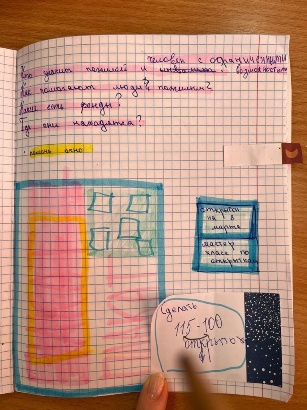 человек с ограниченными
Кто значит пожилой и инвалиды. возможностями
Как помогают людям пожилым?
Какие есть фонды?
Где они находятся?
открытки
на 8
марта
мастер
класс по
открыткам
Сделать
115-100
открыток